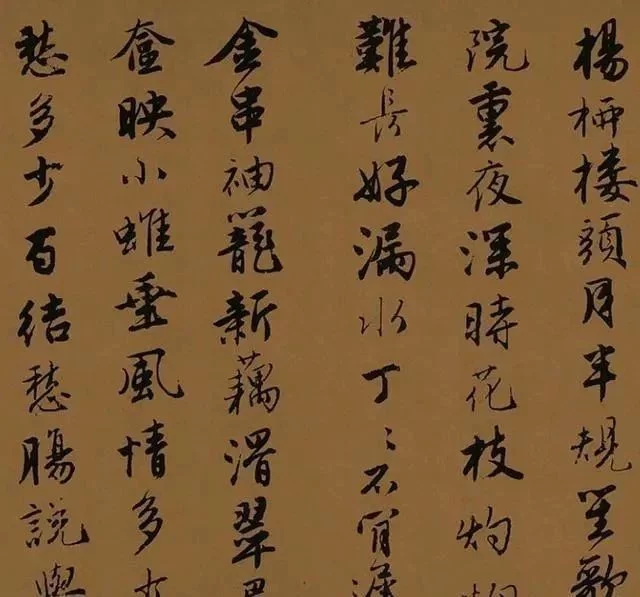 楊柳樓頭月半規笙歌
院裏夜深時花枝灼灼
難長好漏水丁〻不肯
金串袖籠新藕滑翠
奩映小蛾垂風情多少
愁多少百結愁腸說與